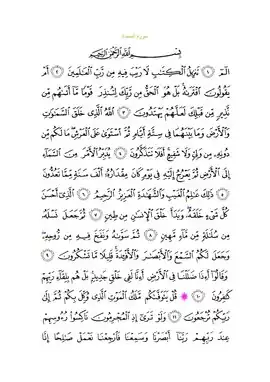 سورة السجدة
بِسْمِ اللَّهِ الرَّحْمَٰنِ الرَّحِيمِ
الٓمٓ ١ تَنزِيلُ ٱلْكِتَٰبِ لَا رَيْبَ فِيهِ مِن رَّبِّ ٱلْعَٰلَمِينَ ٢ أَمْ
يَقُولُونَ ٱفْتَرَىٰهُ بَلْ هُوَ ٱلْحَقُّ مِن رَّبِّكَ لِتُنذِرَ قَوْمًا مَّآ أَتَىٰهُم مِّن
نَّذِيرٍ مِّن قَبْلِكَ لَعَلَّهُمْ يَهْتَدُونَ ٣ ٱللَّهُ ٱلَّذِى خَلَقَ ٱلسَّمَٰوَٰتِ
وَٱلْأَرْضَ وَمَا بَيْنَهُمَا فِى سِتَّةِ أَيَّامٍ ثُمَّ ٱسْتَوَىٰ عَلَى ٱلْعَرْشِ مَا لَكُم مِّن
دُونِهِۦ مِن وَلِىٍّ وَلَا شَفِيعٍ أَفَلَا تَتَذَكَّرُونَ ٤ يُدَبِّرُ ٱلْأَمْرَ مِنَ ٱلسَّمَآءِ
إِلَى ٱلْأَرْضِ ثُمَّ يَعْرُجُ إِلَيْهِ فِى يَوْمٍ كَانَ مِقْدَارُهُۥٓ أَلْفَ سَنَةٍ مِّمَّا تَعُدُّونَ
٥ ذَٰلِكَ عَٰلِمُ ٱلْغَيْبِ وَٱلشَّهَٰدَةِ ٱلْعَزِيزُ ٱلرَّحِيمُ ٦ ٱلَّذِىٓ أَحْسَنَ
كُلَّ شَىْءٍ خَلَقَهُۥ وَبَدَأَ خَلْقَ ٱلْإِنسَٰنِ مِن طِينٍ ٧ ثُمَّ جَعَلَ نَسْلَهُۥ
مِن سُلَٰلَةٍ مِّن مَّآءٍ مَّهِينٍ ٨ ثُمَّ سَوَّىٰهُ وَنَفَخَ فِيهِ مِن رُّوحِهِۦ
وَجَعَلَ لَكُمُ ٱلسَّمْعَ وَٱلْأَبْصَٰرَ وَٱلْأَفْـِٔدَةَ قَلِيلًا مَّا تَشْكُرُونَ ٩
وَقَالُوٓا۟ أَءِذَا ضَلَلْنَا فِى ٱلْأَرْضِ أَءِنَّا لَفِى خَلْقٍ جَدِيدٍۭ بَلْ هُم بِلِقَآءِ رَبِّهِمْ
كَٰفِرُونَ ١٠ قُلْ يَتَوَفَّىٰكُم مَّلَكُ ٱلْمَوْتِ ٱلَّذِى وُكِّلَ بِكُمْ ثُمَّ إِلَىٰ
رَبِّكُمْ تُرْجَعُونَ ١١ وَلَوْ تَرَىٰٓ إِذِ ٱلْمُجْرِمُونَ نَاكِسُوا۟ رُءُوسِهِمْ
عِندَ رَبِّهِمْ رَبَّنَآ أَبْصَرْنَا وَسَمِعْنَا فَٱرْجِعْنَا نَعْمَلْ صَٰلِحًا إِنَّا